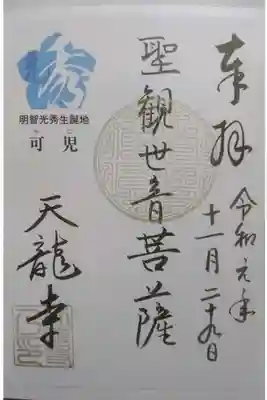 奉拝
令和元年
十一月二十九日
聖観世音菩薩
秀
明智光秀生誕地
可児
天龍寺